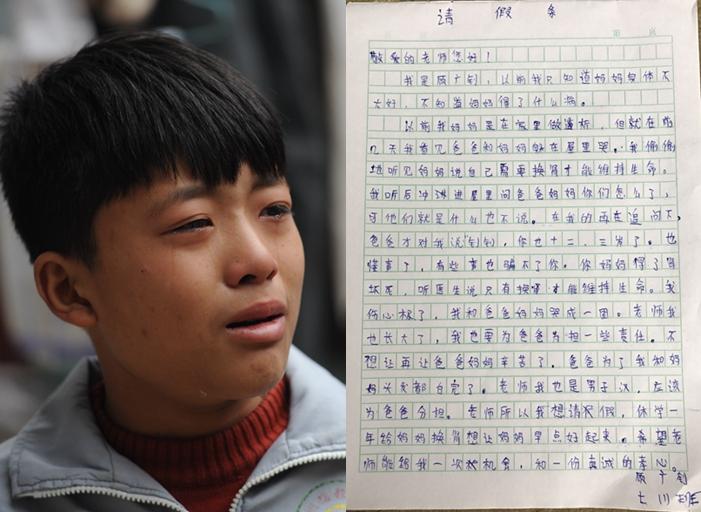 请假条
敬爱的老师您好！
我是质广钊，以前我只知道妈妈身体不
太好，不知道妈妈得了什么病。
以前我妈妈是在家里做透析，但就在前
几天我看见爸爸和妈妈躲在屋里哭。我偷偷
地听见妈妈说自己需要换肾才能维持生命。
我听后冲进进屋里问爸爸妈妈你们怎么了，
可他们就是什么也不说。在我的再在追问下，
爸爸才对我说"钊钊，你也十二、三岁了。也
懂事了，有些事也骗不了你。你妈妈得了肾
坏死，听医生说只有换肾才能维持生命。我
伤心极了，我和爸爸妈妈哭成一团。老师我
也长大了，我也要为爸爸为担一些责任。不
想让再让爸爸妈妈辛苦了。爸爸为了我和妈
妈头发都白完了。老师我也是男子汉，应该
为爸爸分担。老师所以我想请个假，休学一
年给妈妈换肾想让妈妈早点好起来。希望老
师能给我一次机会，和一份真诚的孝心。
广钊
七 班